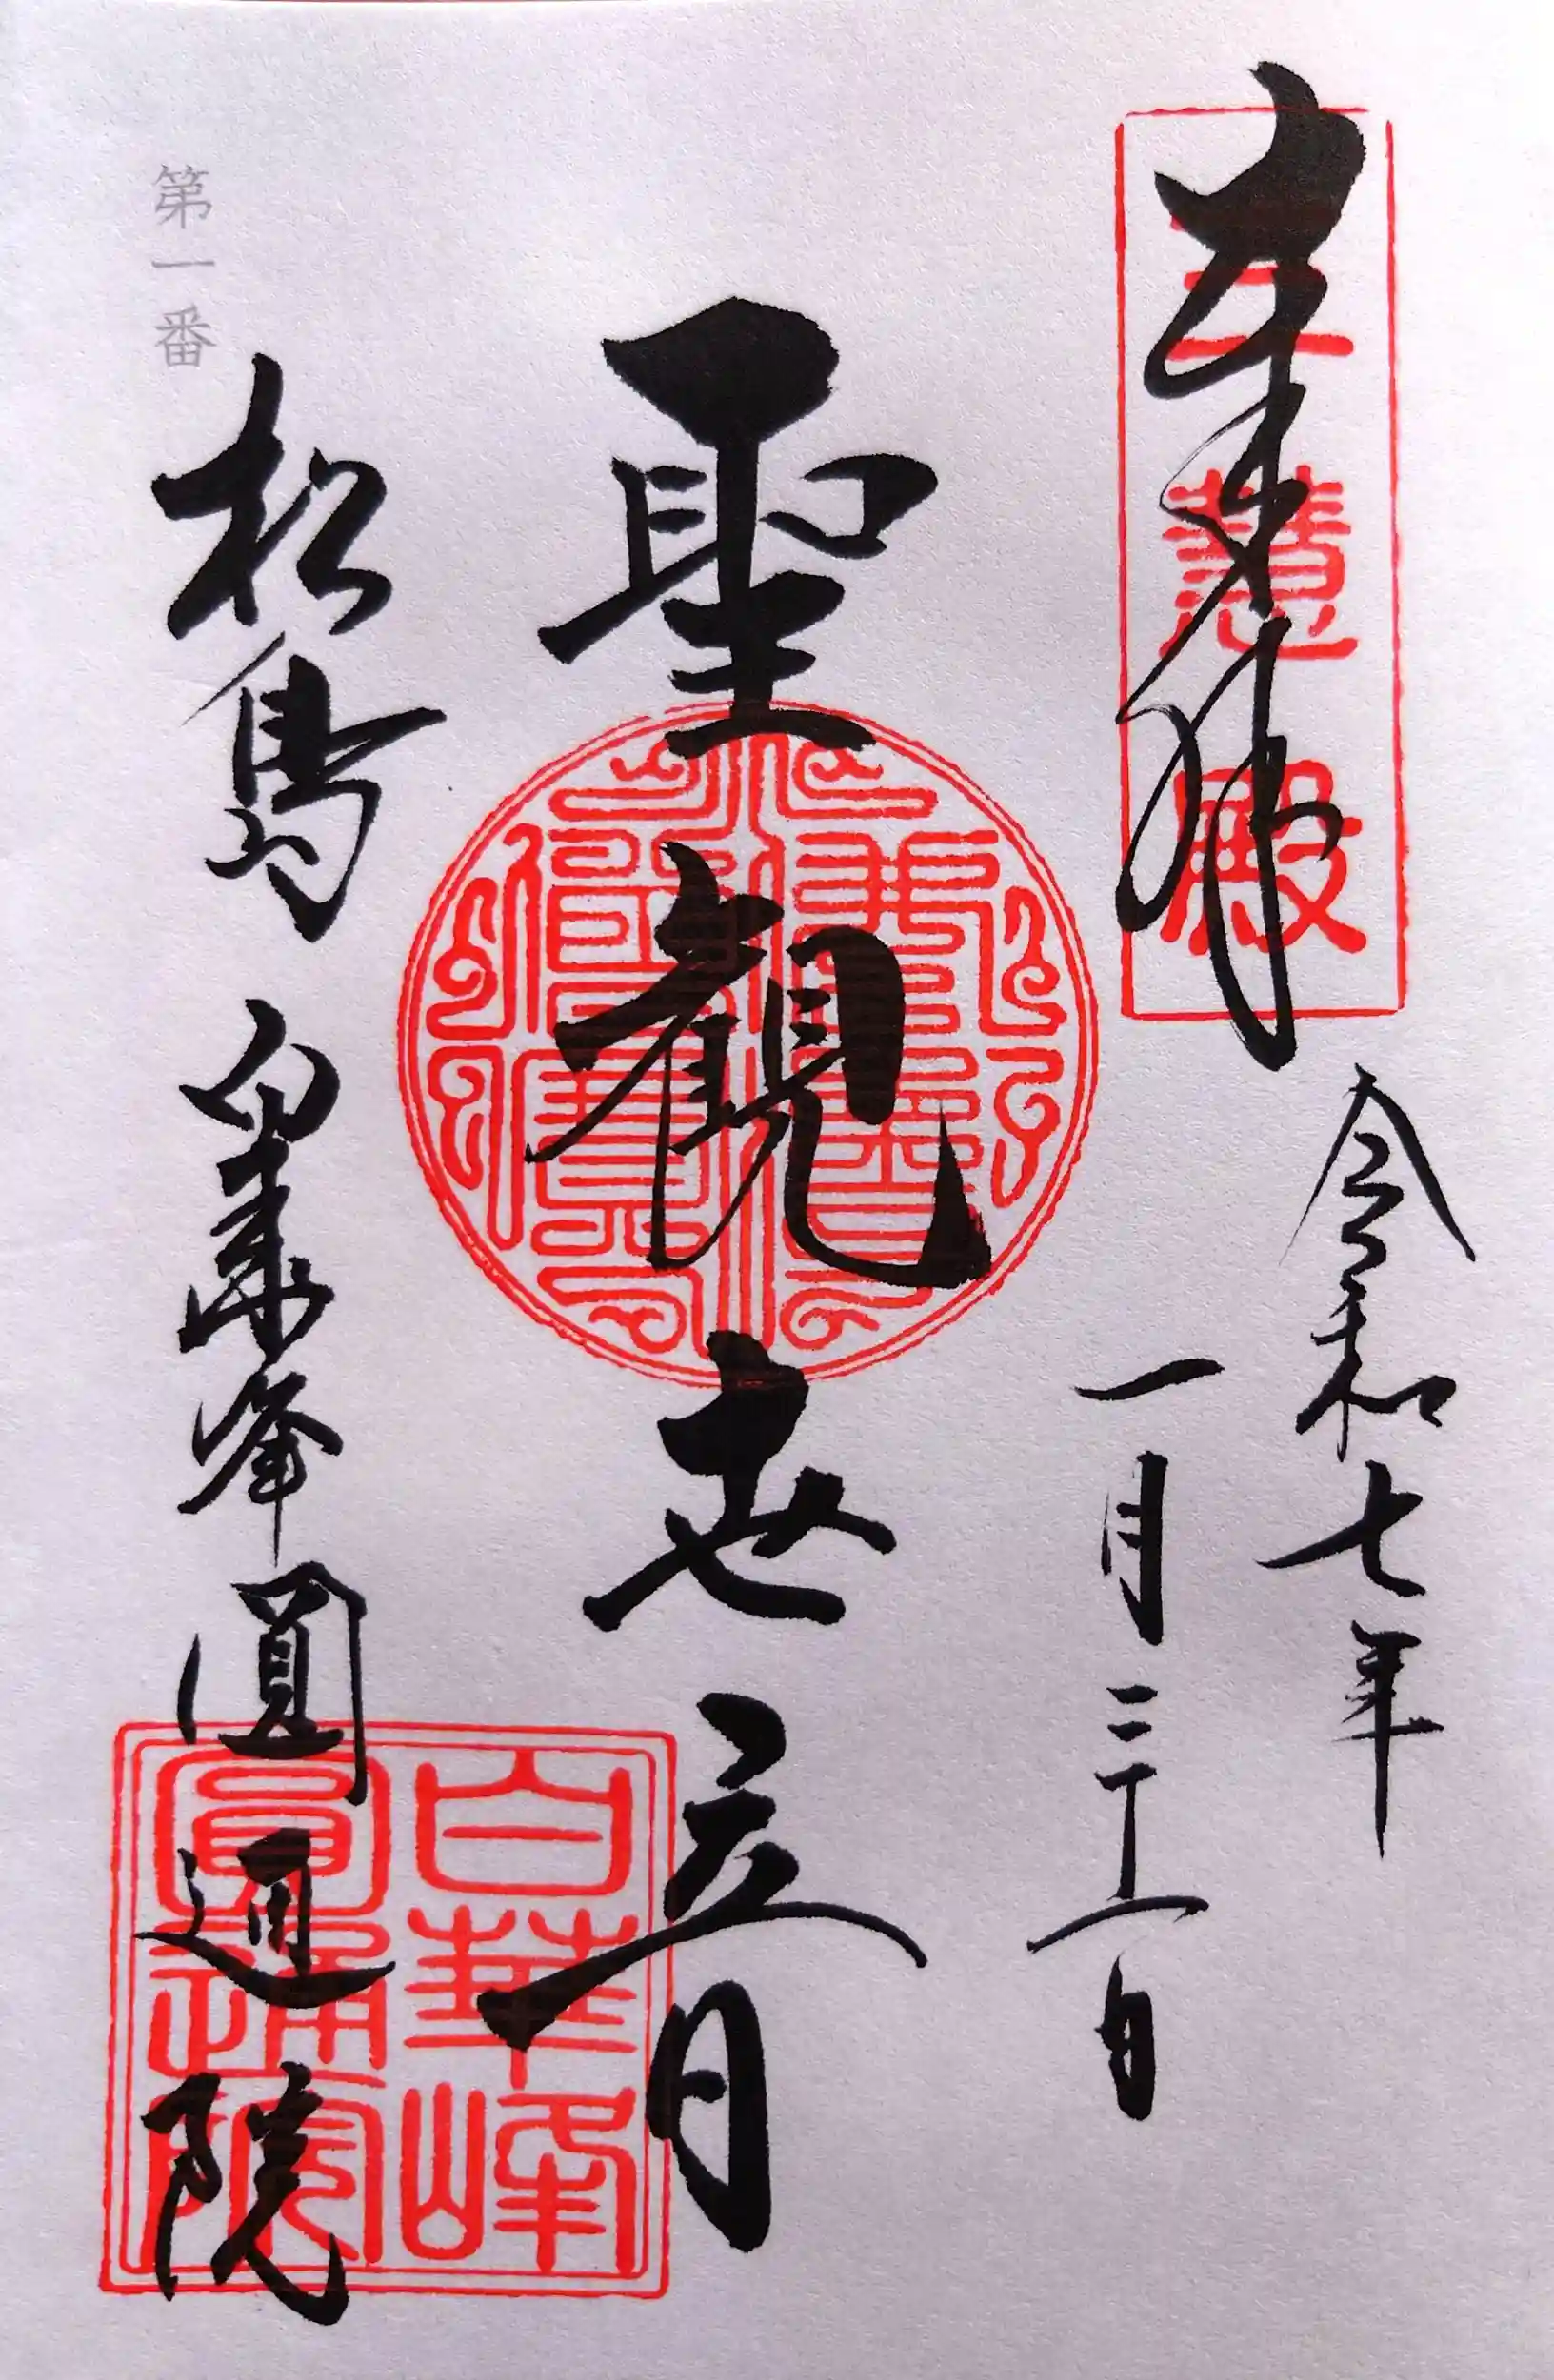 奉拝
三慧殿
令和七年
一月三十一日
聖観世音
佛法僧寶
第一番
松島 白華峰 圓通院
白華峰
圓通院